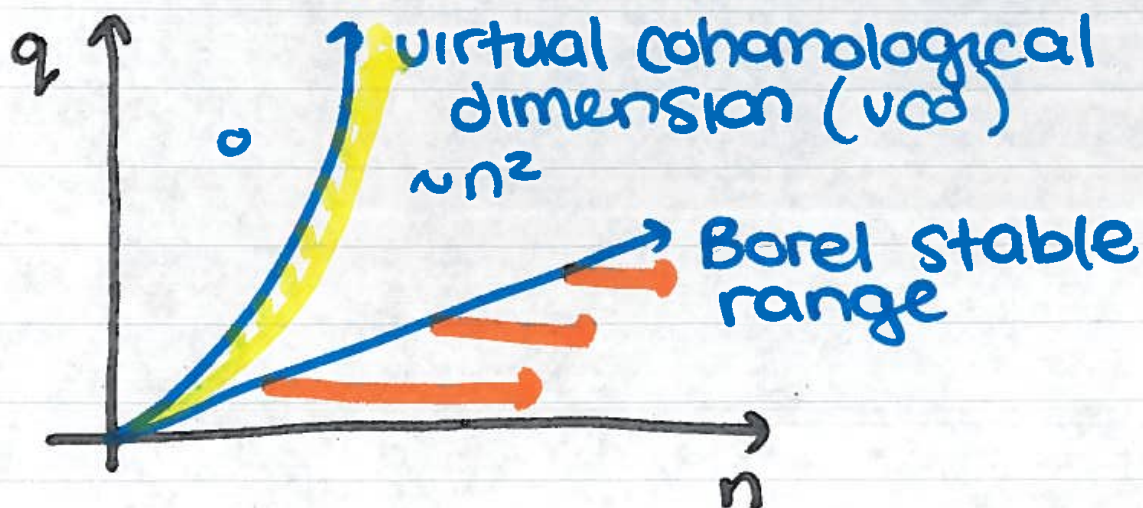 q
virtual cohomological
dimension (vcd)
0
~n²
Borel stable
range
n